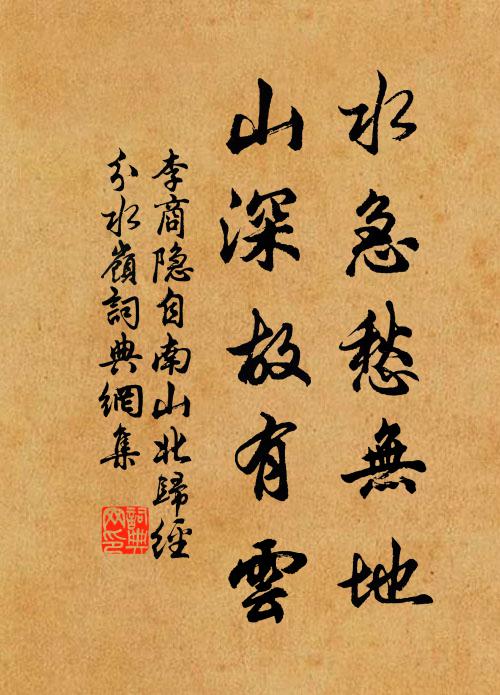 水急愁無地
山深故有雲
李商隐自南山北歸經
分水嶺詞典網集
詞典網印